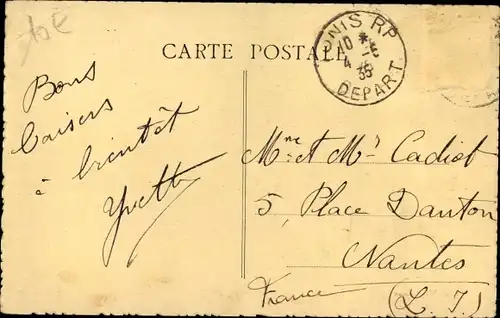 10 €
CARTE POSTALE
TUNIS RP
10 *
4 - 4
35
DEPART
Bons
baisers
à bientôt
Yvette
Mme et Mr Cadiot
5, Place Danton
Nantes
France
(L. I.)